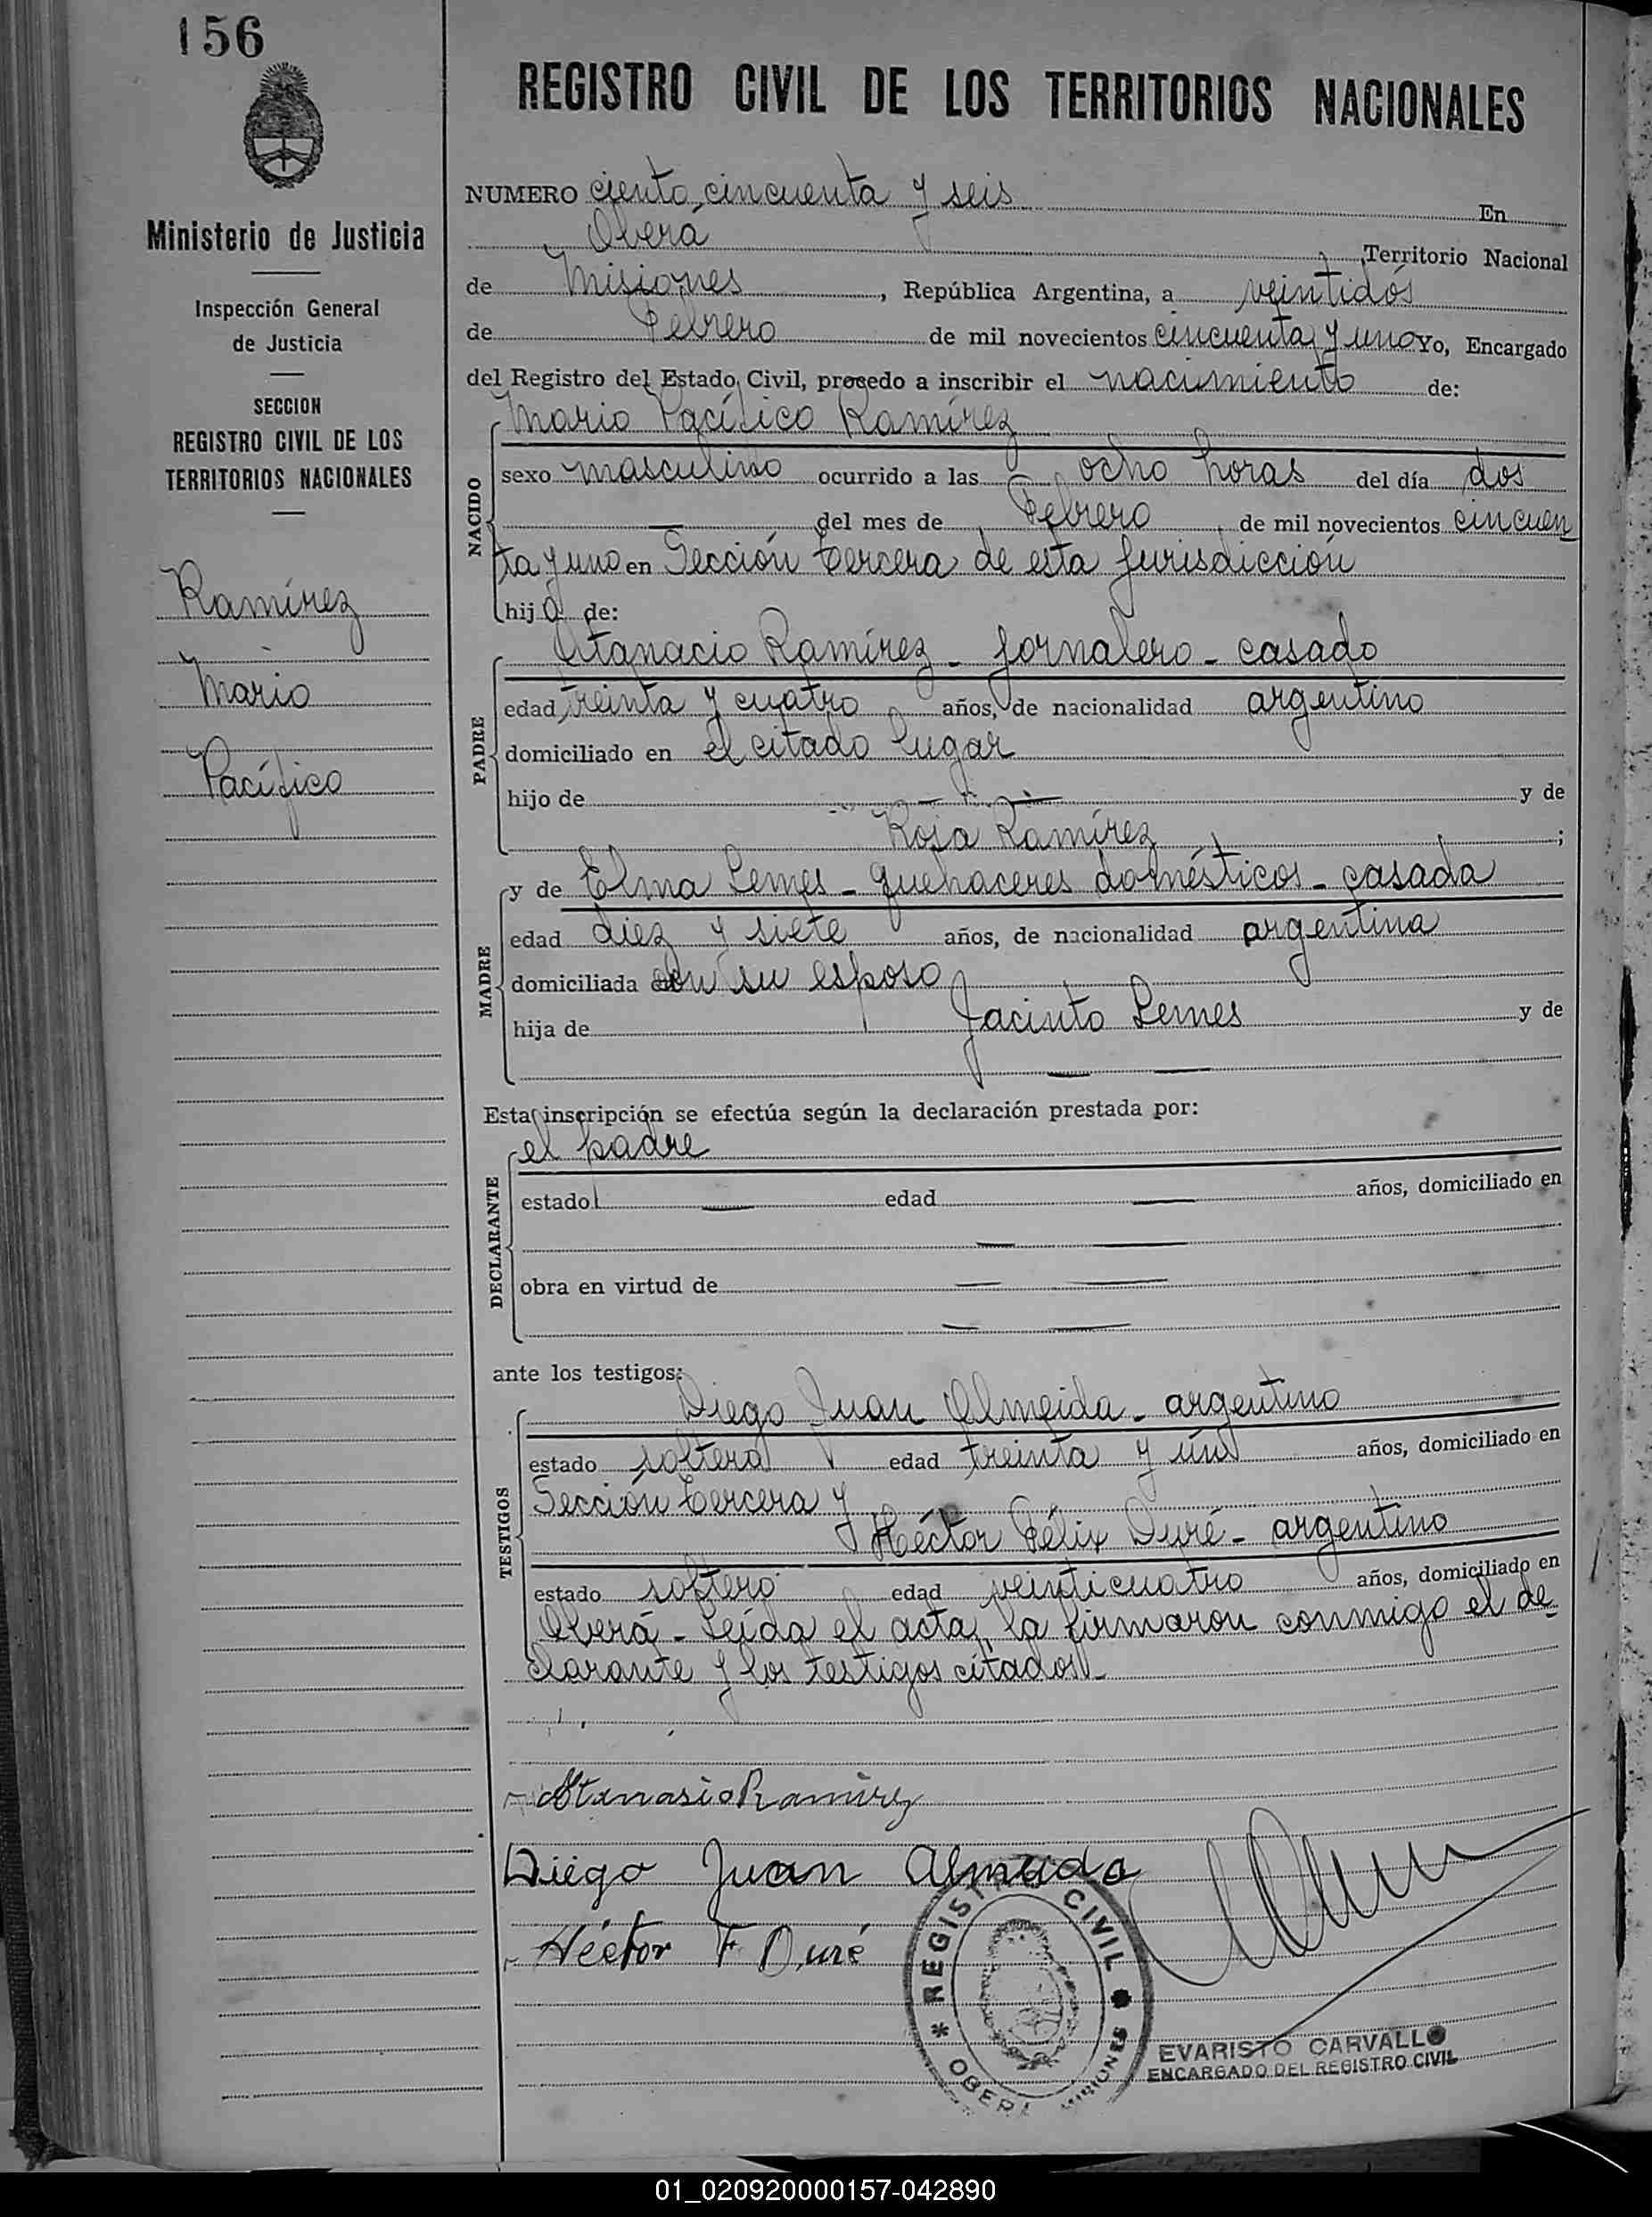 156
REGISTRO CIVIL DE LOS TERRITORIOS NACIONALES
Ministerio de Justicia
Inspección General
de Justicia
SECCION
REGISTRO CIVIL DE LOS
TERRITORIOS NACIONALES
Ramírez
Mario
Pacífico
NUMERO ciento cincuenta y seis En
Oberá Territorio Nacional
de Misiones, República Argentina, a veintidós
de Febrero de mil novecientos cincuenta y uno Yo, Encargado
del Registro del Estado Civil, procedo a inscribir el nacimiento de:
NACIDO
Mario Pacífico Ramírez
sexo masculino ocurrido a las ocho horas del día dos
— del mes de Febrero de mil novecientos cincuen
ta y uno en Sección tercera de esta jurisdicción
hijo de:
PADRE
Atanacio Ramírez - jornalero - casado
edad treinta y cuatro años, de nacionalidad argentino
domiciliado en el citado lugar
hijo de — — y de
Rosa Ramírez ;
MADRE
y de Elma Lemes - quehaceres domésticos - casada
edad diez y siete años, de nacionalidad argentina
domiciliada con su esposo
hija de Jacinto Lemes y de
— —
Esta inscripción se efectúa según la declaración prestada por:
DECLARANTE
el padre
estado — edad — años, domiciliado en
— —
obra en virtud de — —
— —
ante los testigos:
TESTIGOS
Diego Juan Almeida - argentino
estado soltero edad treinta y un años, domiciliado en
Sección tercera y
Héctor Félix Duré - argentino
estado soltero edad veinticuatro años, domiciliado en
Oberá - Leída el acta, la firmaron conmigo el de
clarante y los testigos citados -
Atanasio Ramirez
Diego Juan Almeida
Héctor F Duré
REGISTRO CIVIL
* OBERA MISIONES
EVARISTO CARVALLO
ENCARGADO DEL REGISTRO CIVIL
01_020920000157-042890